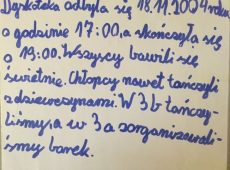 Dyskoteka odbyła się 18.11.2004 roku
o godzinie 17:00, a skończyła się
o 19:00. Wszyscy bawili się
świetnie. Chłopcy nawet tańczyli
z dziewczynami. W 3 b tańczy-
liśmy, a w 3 a zorganizowali-
śmy barek.